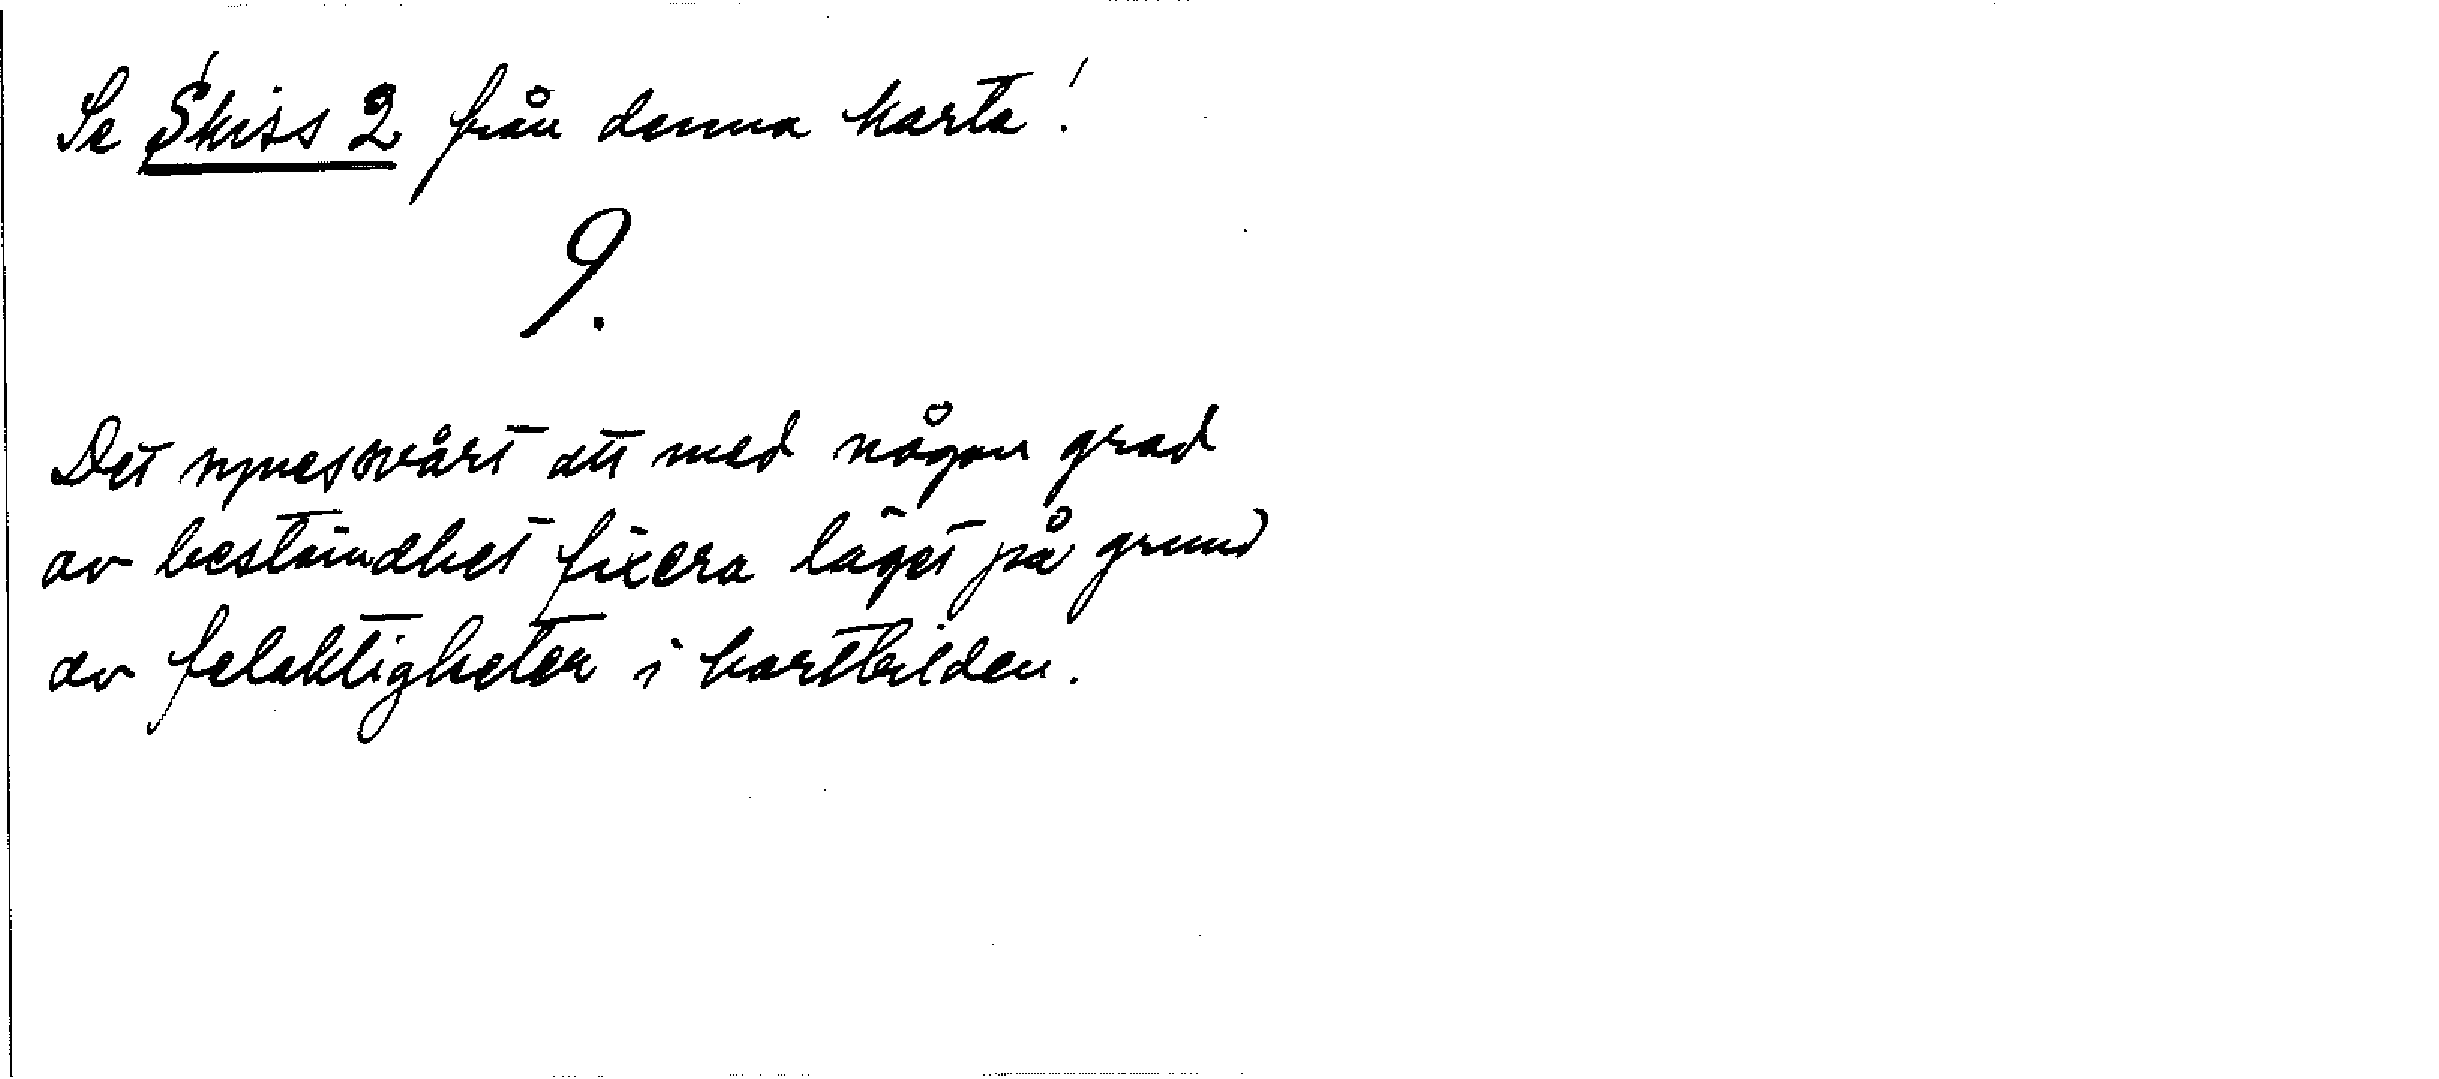 Se Skiss 2 från denna karta!
9.
Det synes svårt att med någon grad
av bestämdhet fixera läget på grund
av felaktigheter i kartbilden.